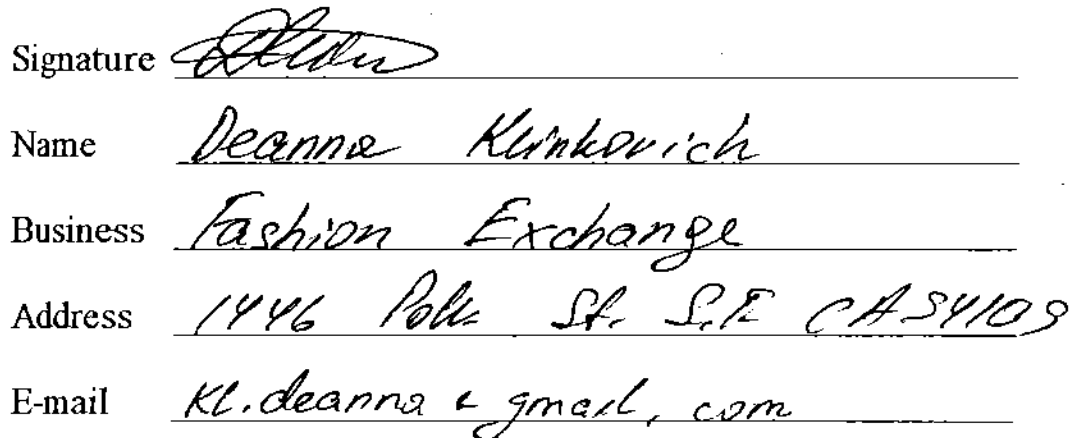 Signature
Name Deanna Klinkovich
Business Fashion Exchange
Address 1446 Polk St. S.F. CA 94109
E-mail kl.deanna @ gmail, com